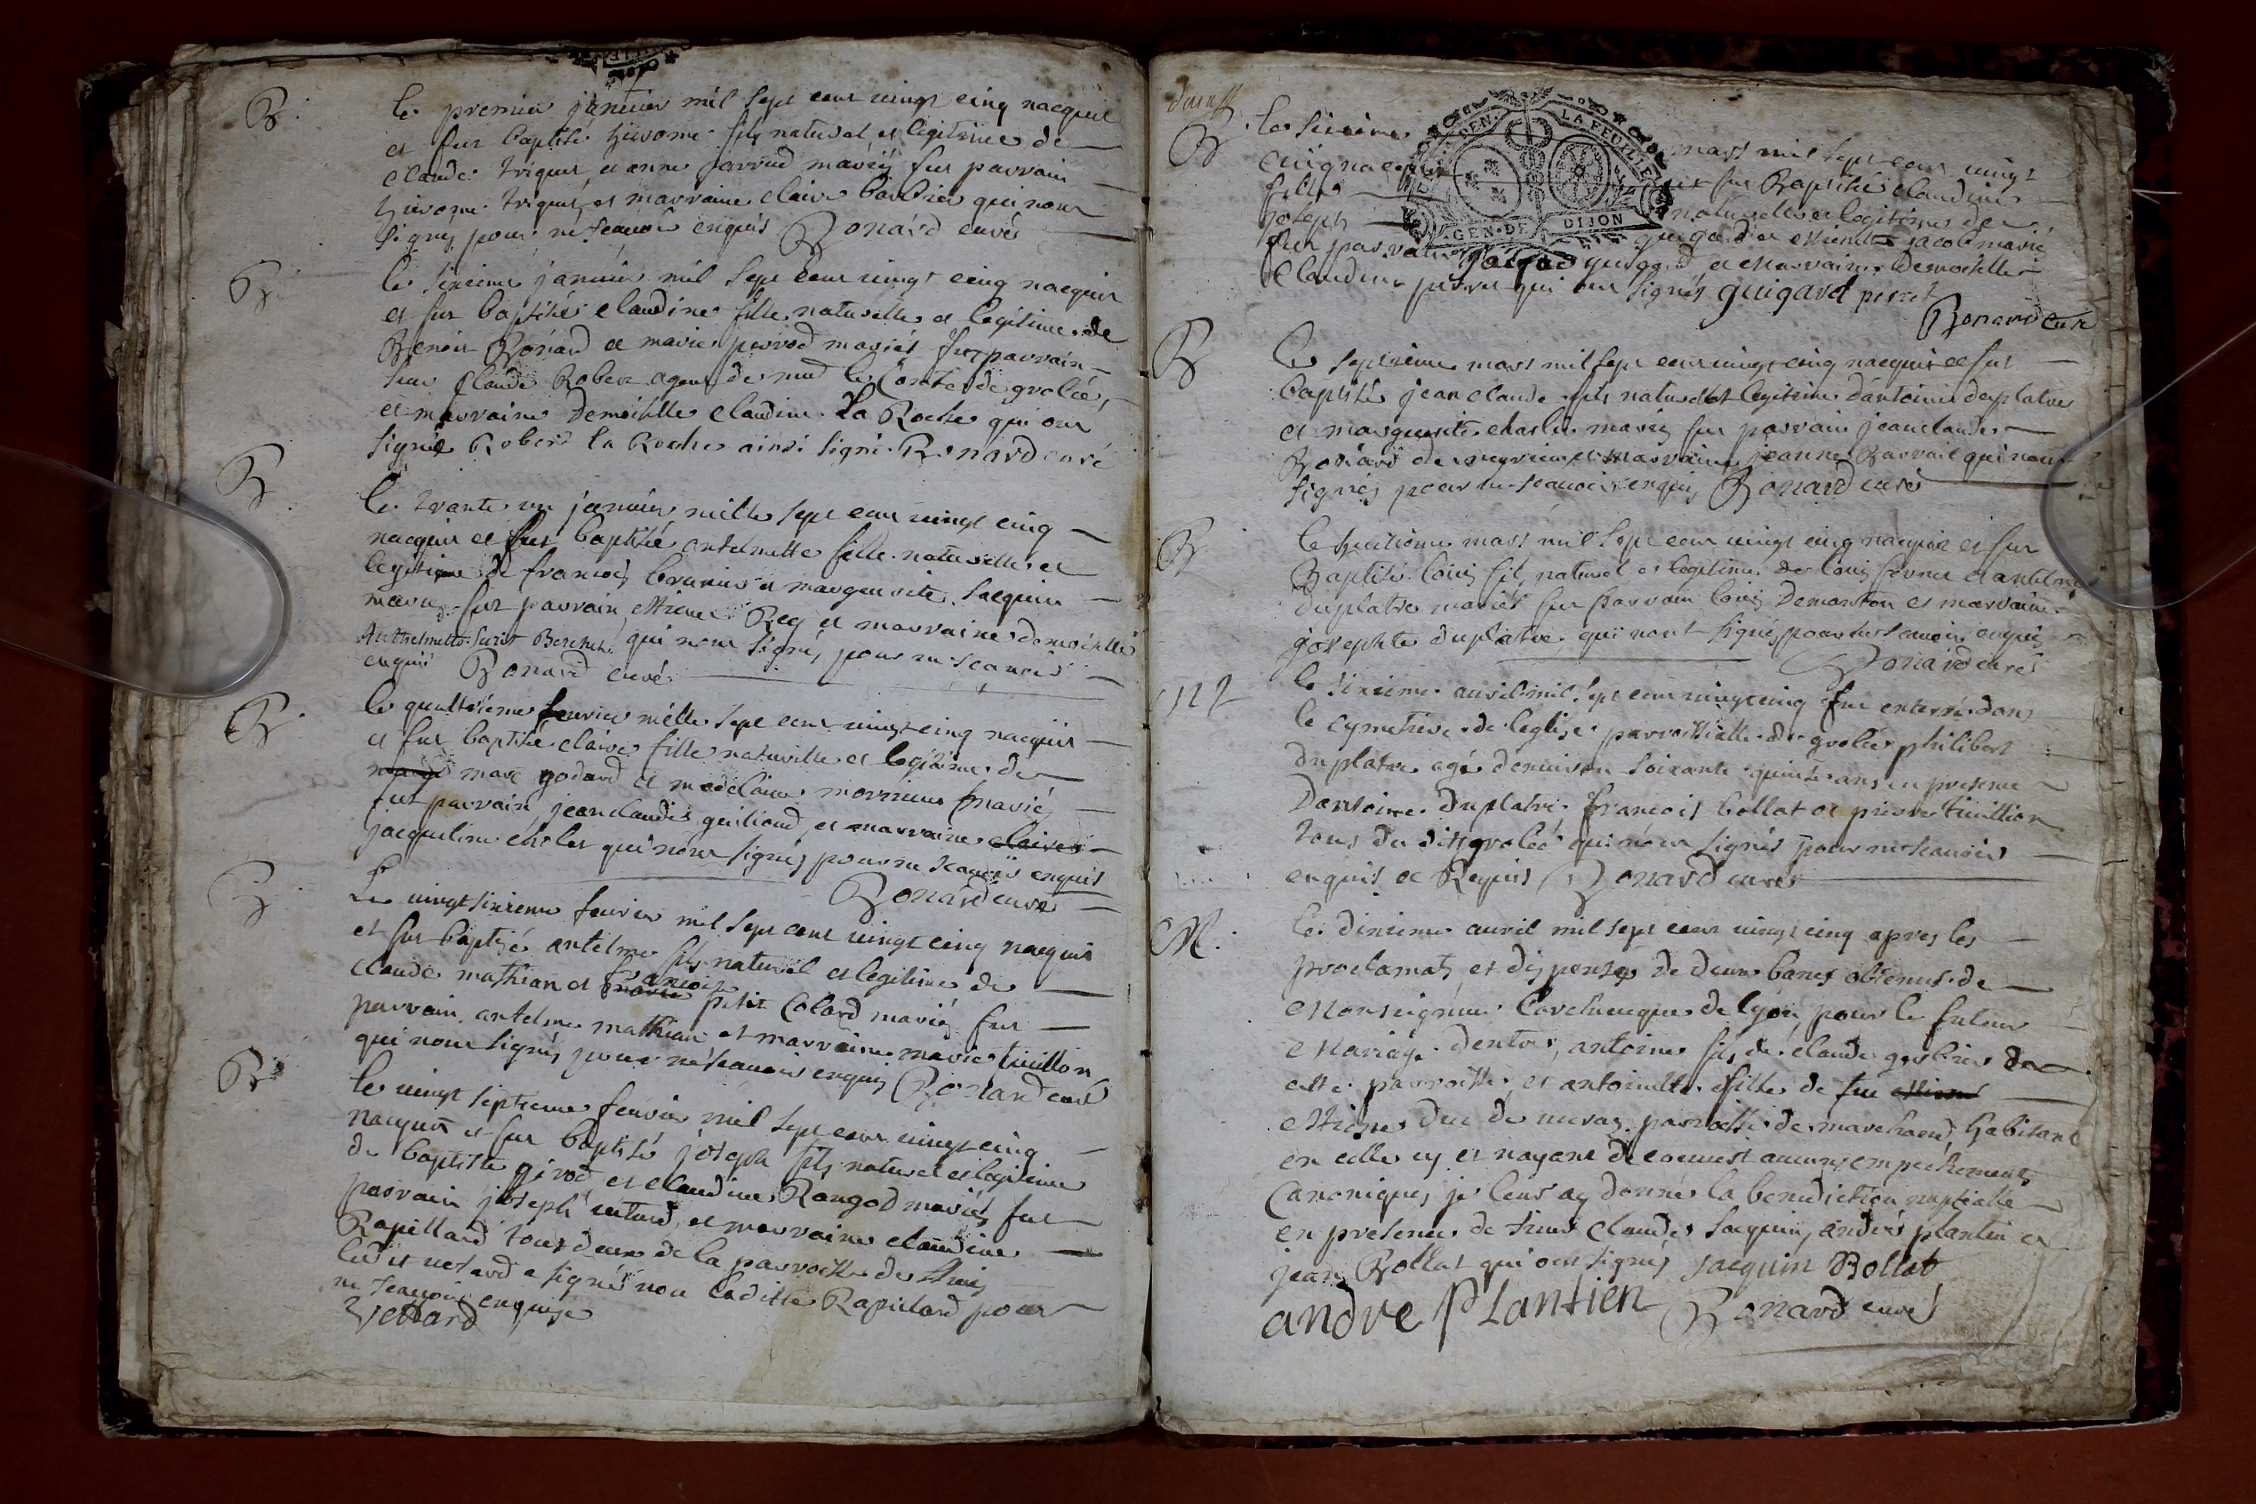 B.
le premier janvier mil sept cent vingt cinq nacquit
et fut baptisé hierome fils naturel et legitime de
claude triquet et anne parrud mariéz fut parrain
hierome triquet, et marraine claire barbier qui nont
signéz pour ne scauoir enquis Bonard curé
B.
le sixieme januier mil sept cent vingt cinq nacquit
et fut baptisée claudine fille naturelle et legitime de
Benoit Bonard et marie perrod mariés fut parrain
sieur claude Robert agent de mr le Comte de grolée,
et marraine demoiselle claudine La Roche qui ont
signé Robert la Roche ainsi signé Bonard curé
B
le trante un januier mille sept cent vingt cinq
nacquit et fut baptisée antelmette fille naturelle et
legitime de francois brunier et marguerite Jacquin
mariez fut parrain estienne Rey et marraine demoiselle
Anthelmette qui nont signéz pour ne scauoir
enquis Bonard curé
B.
le quattrieme feurier mille sept cent vingt cinq nacquit
et fut baptisée claire fille naturelle et legitime de
marc godard et madelaine mariéz
fut parrain jean claude guilloud, et marraine claire
jacqueline choles qui nont signéz pour ne scauoir enquis
Bonard curé
B.
Le vingt sixieme feurier mil sept cent vingt cinq nacquit
et fut baptizé antelme fils naturel et legitime de
claude mathian et marie francoise petit Colard mariéz fut
parrain antelme mathian et marraine marie tuillon
qui nont signéz pour ne scauoir enquis Bonard curé
B.
le vingt septieme feurier mil sept cent vingt cinq
nacquit et fut baptisé joseph fils naturel et legitime
de baptiste girod et claudine Rangod mariés fut
parrain joseph et marraine claudine
Rapillard tous deux de la parroisse de
ledit a signé non laditte Rapillard pour
ne scauoir enquise
B
le sixieme mars mil sept cent vingt
cinq nacquit et fut Baptisée claudine
fille naturelle et legitime de
joseph guigard et estiennette jacob mariéz
fut parrain jacque guigard et marraine demoiselle
Claudine perret qui ont signés guigard perret
Bonard curé
B
le septieme mars mil sept cent vingt cinq nacquit et fut
baptisé jean claude fils naturel et legitime d'antoine duplatre
et marguerite charlin mariez fut parrain jean claude
Bonard de et marraine jeanne qui nont
signéz pour ne scauoir enquis Bonard curé
B
le huitieme mars mil sept cent vingt cinq nacquit et fut
Baptisé louis fils naturel et legitime de louis et antelme
duplatre mariés fut parrain louis Demanton et marraine
josephte duplatre qui nont signés pour ne scauoir enquis
Bonard curé
le sixieme auril mil sept cent vingt cinq fut enterré dans
le cymetiere de leglise parroissialle de grolée philibert
duplatre agé denuiron soixante quinze ans en presence
Dantoine duplatre francois bollat et pierre tuillion
tous du dit grolée qui n'ont signés pour ne scauoir
enquis et Requis Bonard curé
M.
le dixieme auril mil sept cent vingt cinq apres les
proclamats et dispense de deux bancs obtenus de
Monseigneur Larcheueque de lyon pour le futur
Mariage d'entre, antoine fils de claude de
cette parroisse, et antoinette fille de feu estienne
estienne duc de parroisse de marchand, habitant
en celle cy et nayant decouuert aucuns empechements
Canoniques je leur ay donné la benediction nuptialle
en presence de sieur claude Jacquin, andré plantin et
jean Bollat qui ont signéz jacquin Bollat
andre PLantien Bonard curé
GEN. LA FEUILLE
GEN. DE DIJON